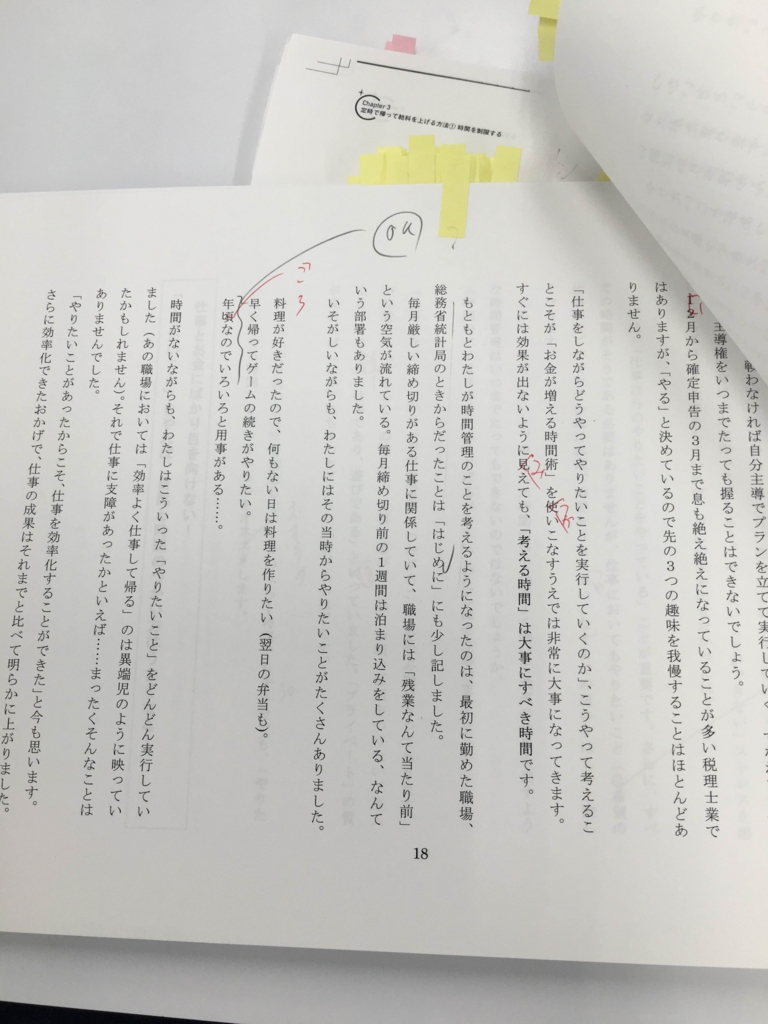 Chapter 3
定時で帰って給料を上げる方法① 時間を制限する
OK
ごろ
戦わなければ自分主導でプランを立てて実行してい
主導権をいつまでたっても握ることはできないでしょう。
月から確定申告の3月まで息も絶え絶えになっていることが多い税理士業で
はありますが、「やる」と決めているので先の3つの趣味を我慢することはほとんどあ
りません。
「仕事をしながらどうやってやりたいことを実行していくのか」、こうやって考えるこ
とこそが「お金が増える時間術」を使いこなすうえでは非常に大事になってきます。
すぐには効果が出ないように見えても、「考える時間」は大事にすべき時間です。
もともとわたしが時間管理のことを考えるようになったのは、最初に勤めた職場、
総務省統計局のときからだったことは「はじめに」にも少し記しました。
毎月厳しい締め切りがある仕事に関係していて、職場には「残業なんて当たり前」
という空気が流れている。毎月締め切り前の1週間は泊まり込みをしている、なんて
いう部署もありました。
いそがしいながらも、わたしにはその当時からやりたいことがたくさんありました。
料理が好きだったので、何もない日は料理を作りたい（翌日の弁当も）。
早く帰ってゲームの続きがやりたい。
年頃なのでいろいろと用事がある……。
時間がないながらも、わたしはこういった「やりたいこと」をどんどん実行してい
ました（あの職場においては「効率よく仕事して帰る」のは異端児のように映ってい
たかもしれません）。それで仕事に支障があったかといえば……まったくそんなことは
ありませんでした。
「やりたいことがあったからこそ、仕事を効率化することができた」と今も思います。
さらに効率化できたおかげで、仕事の成果はそれまでと比べて明らかに上がりました。
18